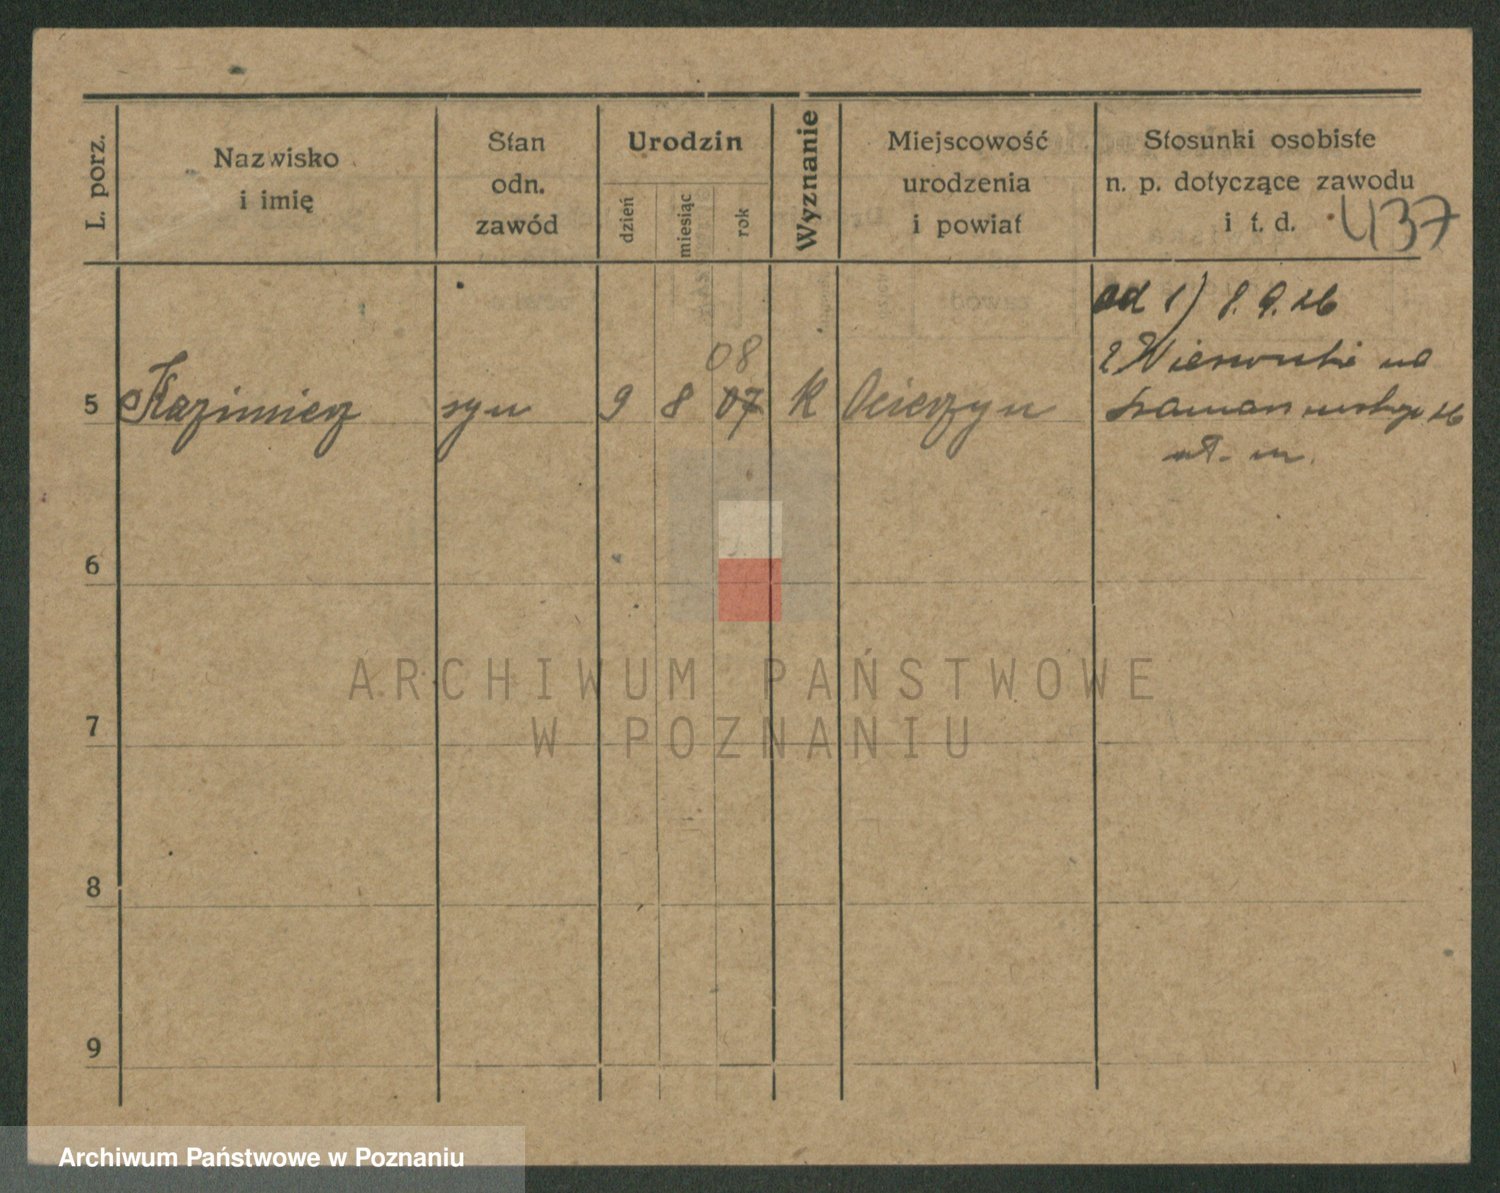 L. porz.
Nazwisko
i imię
Stan
odn.
zawód
Urodzin
dzień
miesiąc
rok
Wyznanie
Miejscowość
urodzenia
i powiat
Stosunki osobiste
n. p. dotyczące zawodu
i t. d.
437
ad 1) 8. 9. 26
08
5 Kazimierz syn 9 8 07 k Ocieszyn
6
7
8
9
ARCHIWUM PAŃSTWOWE
W POZNANIU
Archiwum Państwowe w Poznaniu